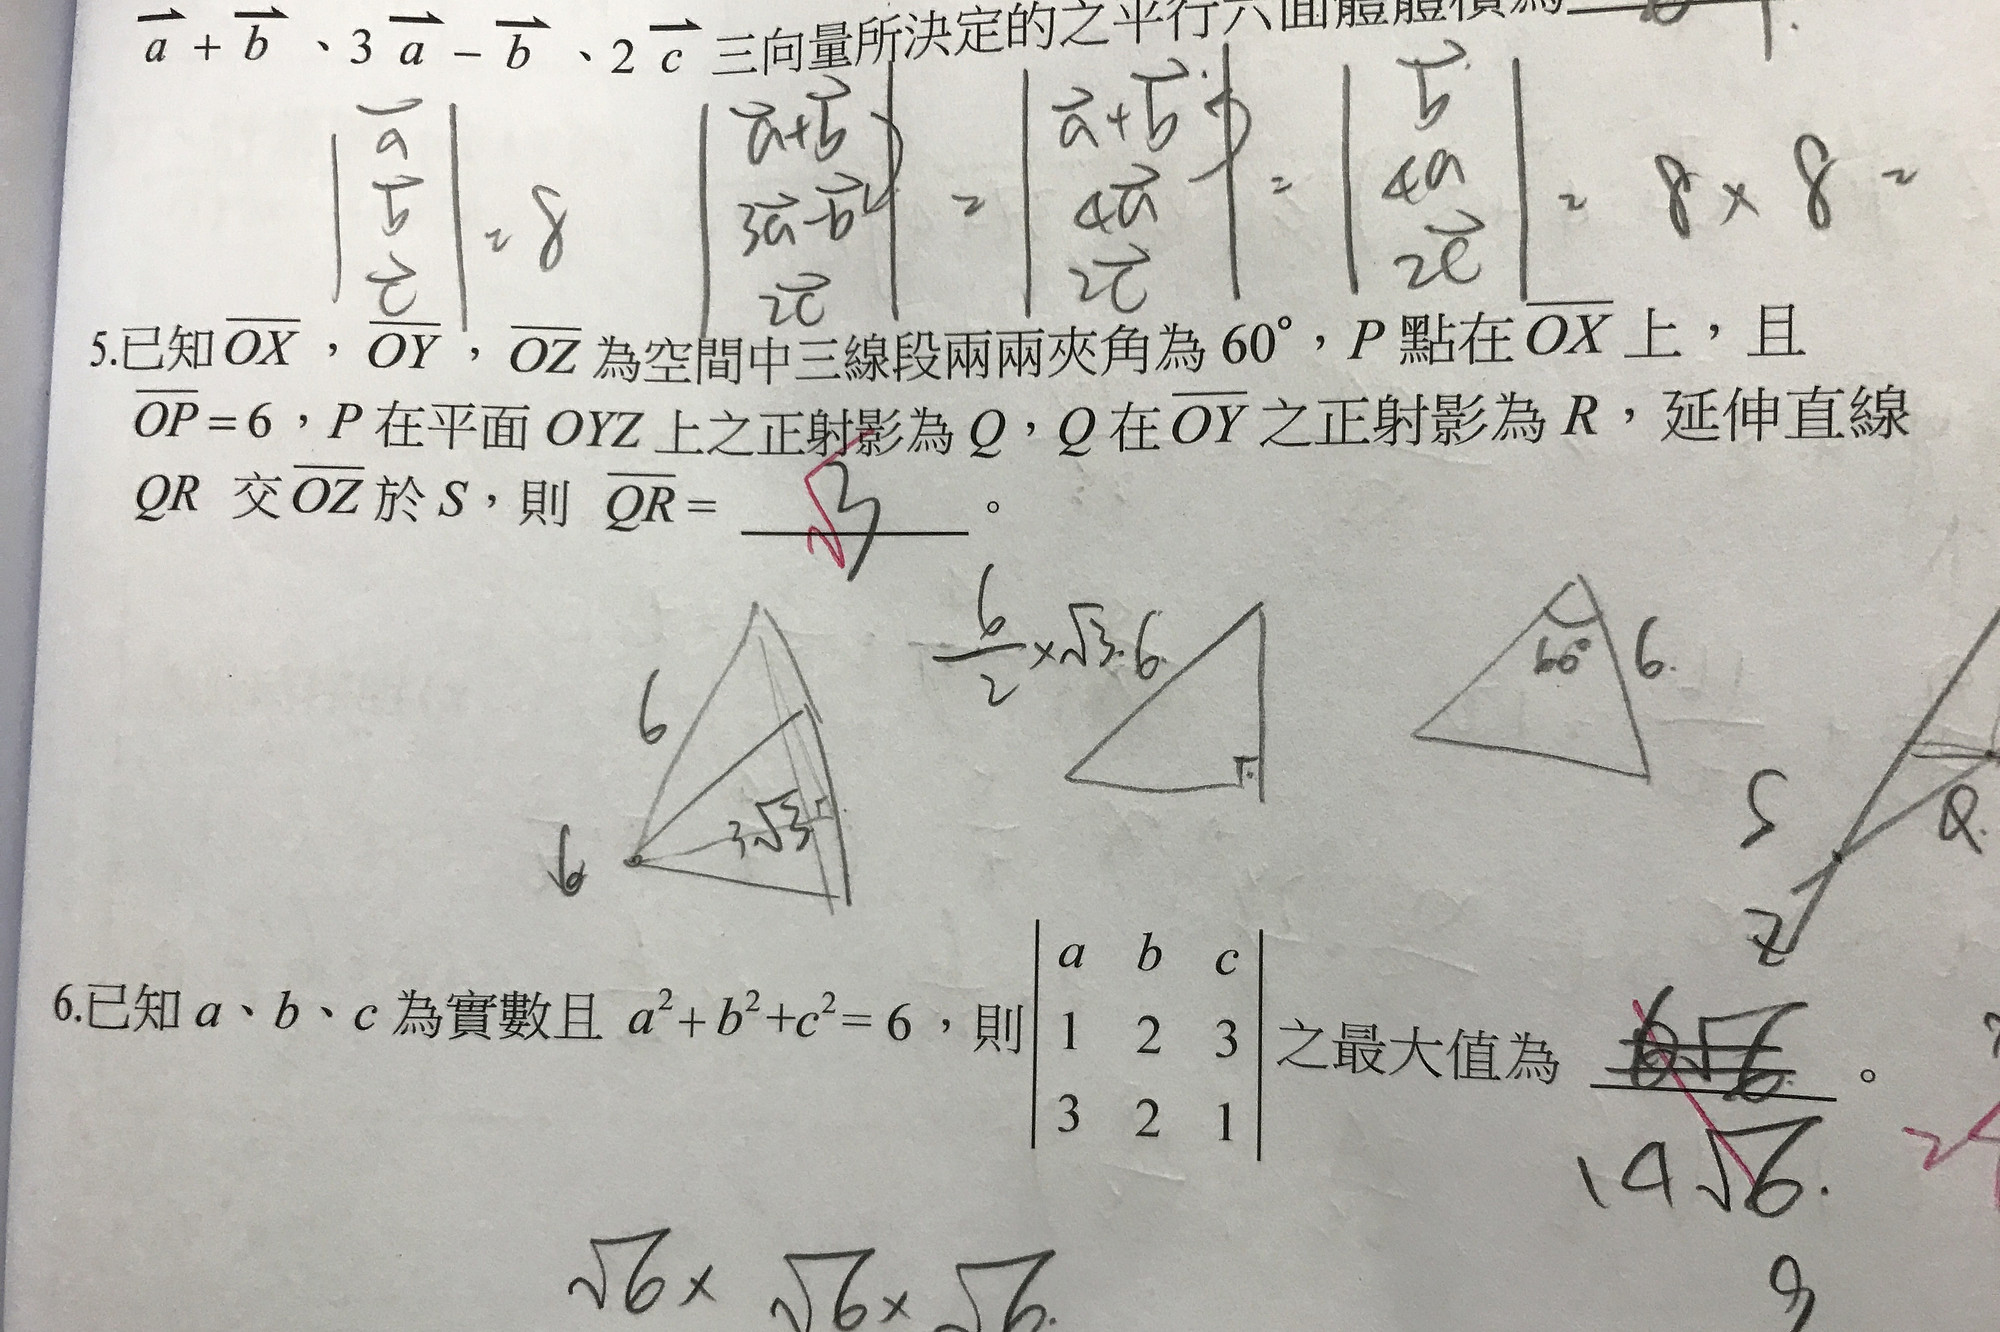 a + b、3a − b、2c 三向量所決定的之平行六面體體積為
|a b c| = 8 |a+b 3a-b 2c| = |a+b 4a 2c| = |b 4a 2c| = 8 × 8 =
5.已知 OX，OY，OZ 為空間中三線段兩兩夾角為 60°，P 點在 OX 上，且
OP = 6，P 在平面 OYZ 上之正射影為 Q，Q 在 OY 之正射影為 R，延伸直線
QR 交 OZ 於 S，則 QR = √3 。
6/2 × √3. 6
60° 6.
6
3√3
6
S
Q.
Z
6.已知 a、b、c 為實數且 a²+b²+c² = 6，則 |a b c
1 2 3
3 2 1| 之最大值為 6√6 。
14√6.
√6 × √6 × √6.